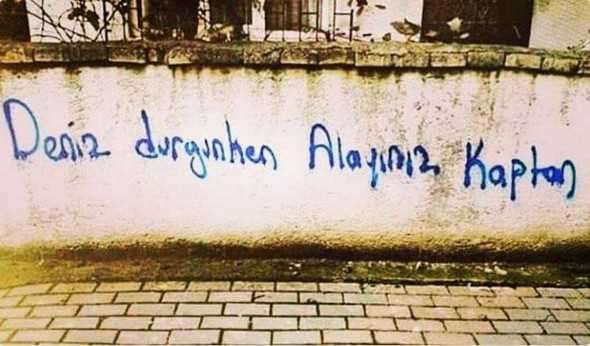 Deniz durgunken Alayınız Kaptan